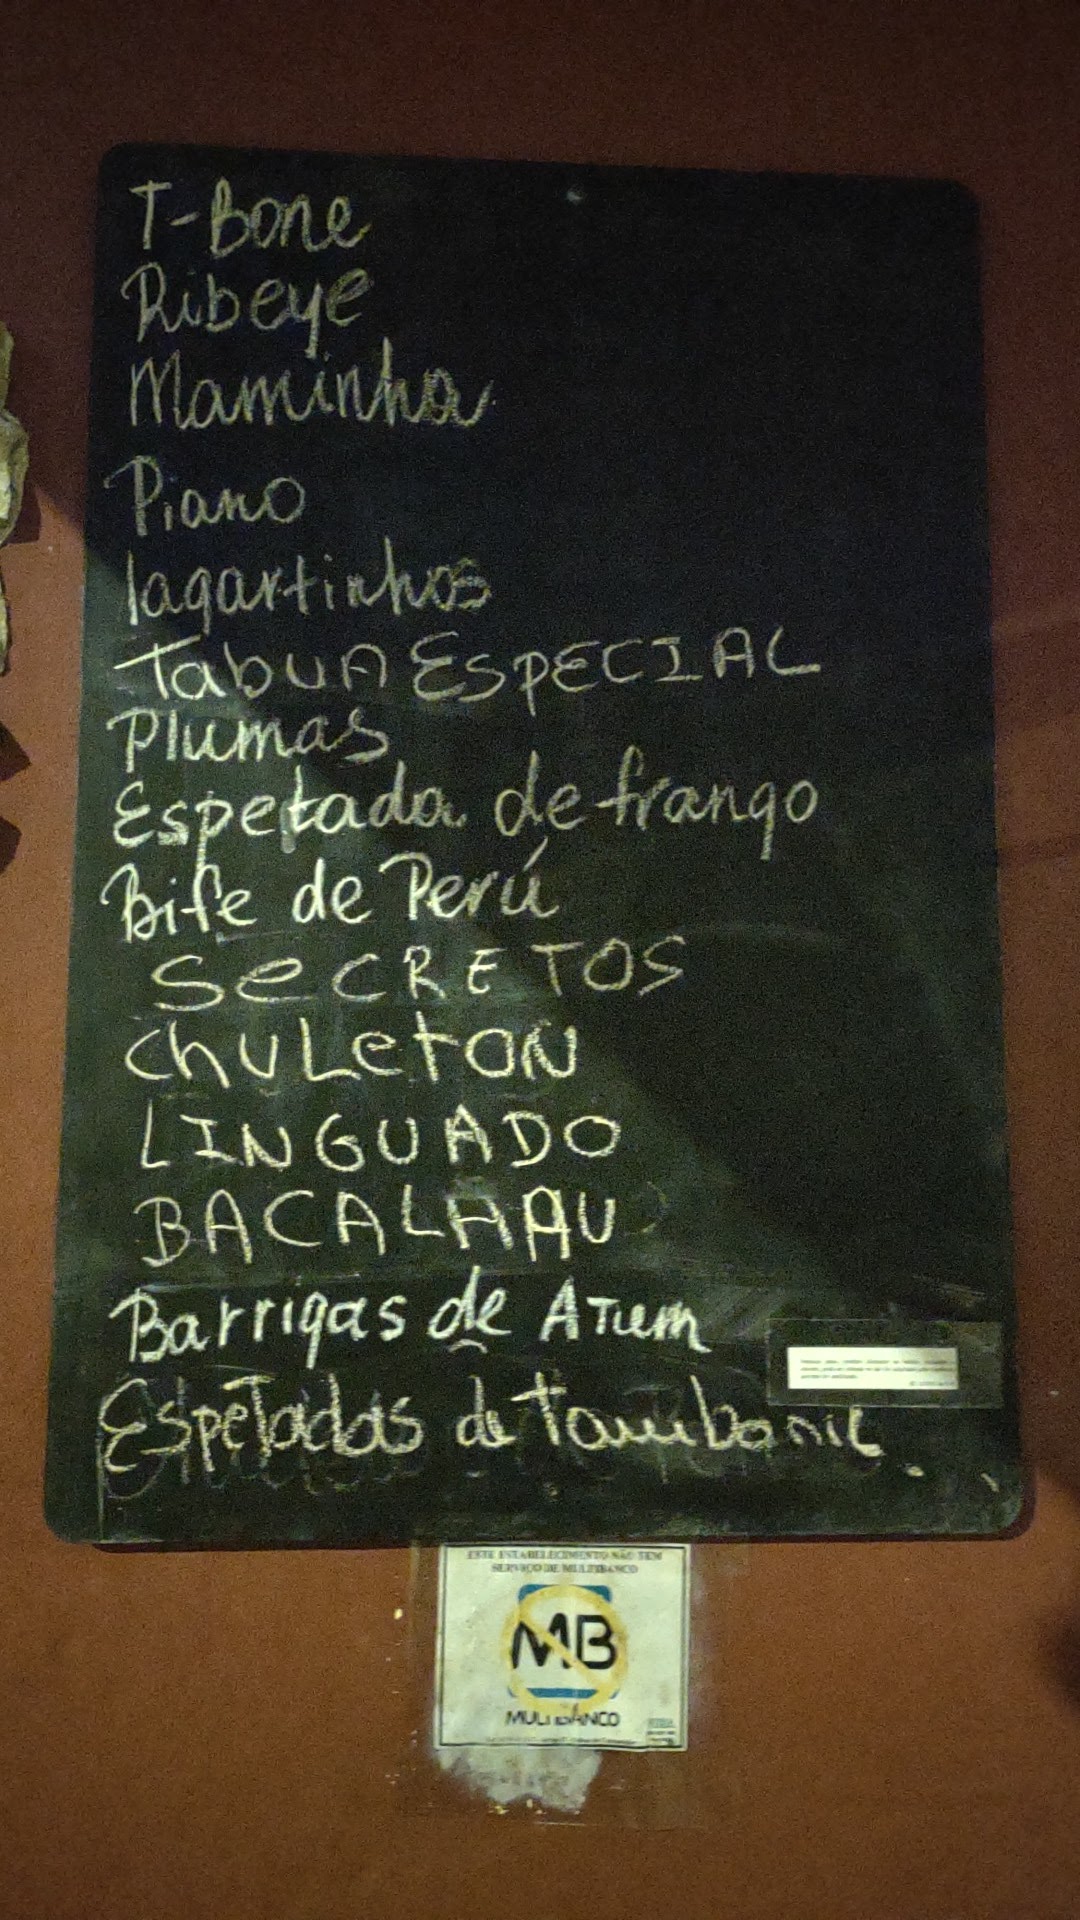 T-Bone
Ribeye
Maminha
Piano
lagartinhos
TAbUA ESPECIAL
Plumas
Espetada de frango
Bife de Perú
SeCRETOS
ChuLetON
LINGUADO
BACALHAU
Barrigas de ATum
EspeTadas de Tamboril
ESTE ESTABELECIMENTO NÃO TEM
SERVIÇO DE MULTIBANCO
MB
MULTIBANCO